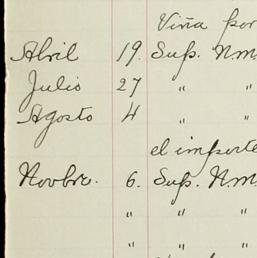 Viña por
Abril 19. Sup. N.m.
Julio 27 " "
Agosto 4 " "
el importe
Novbre. 6. Sup. N.m.
" " "
" " "